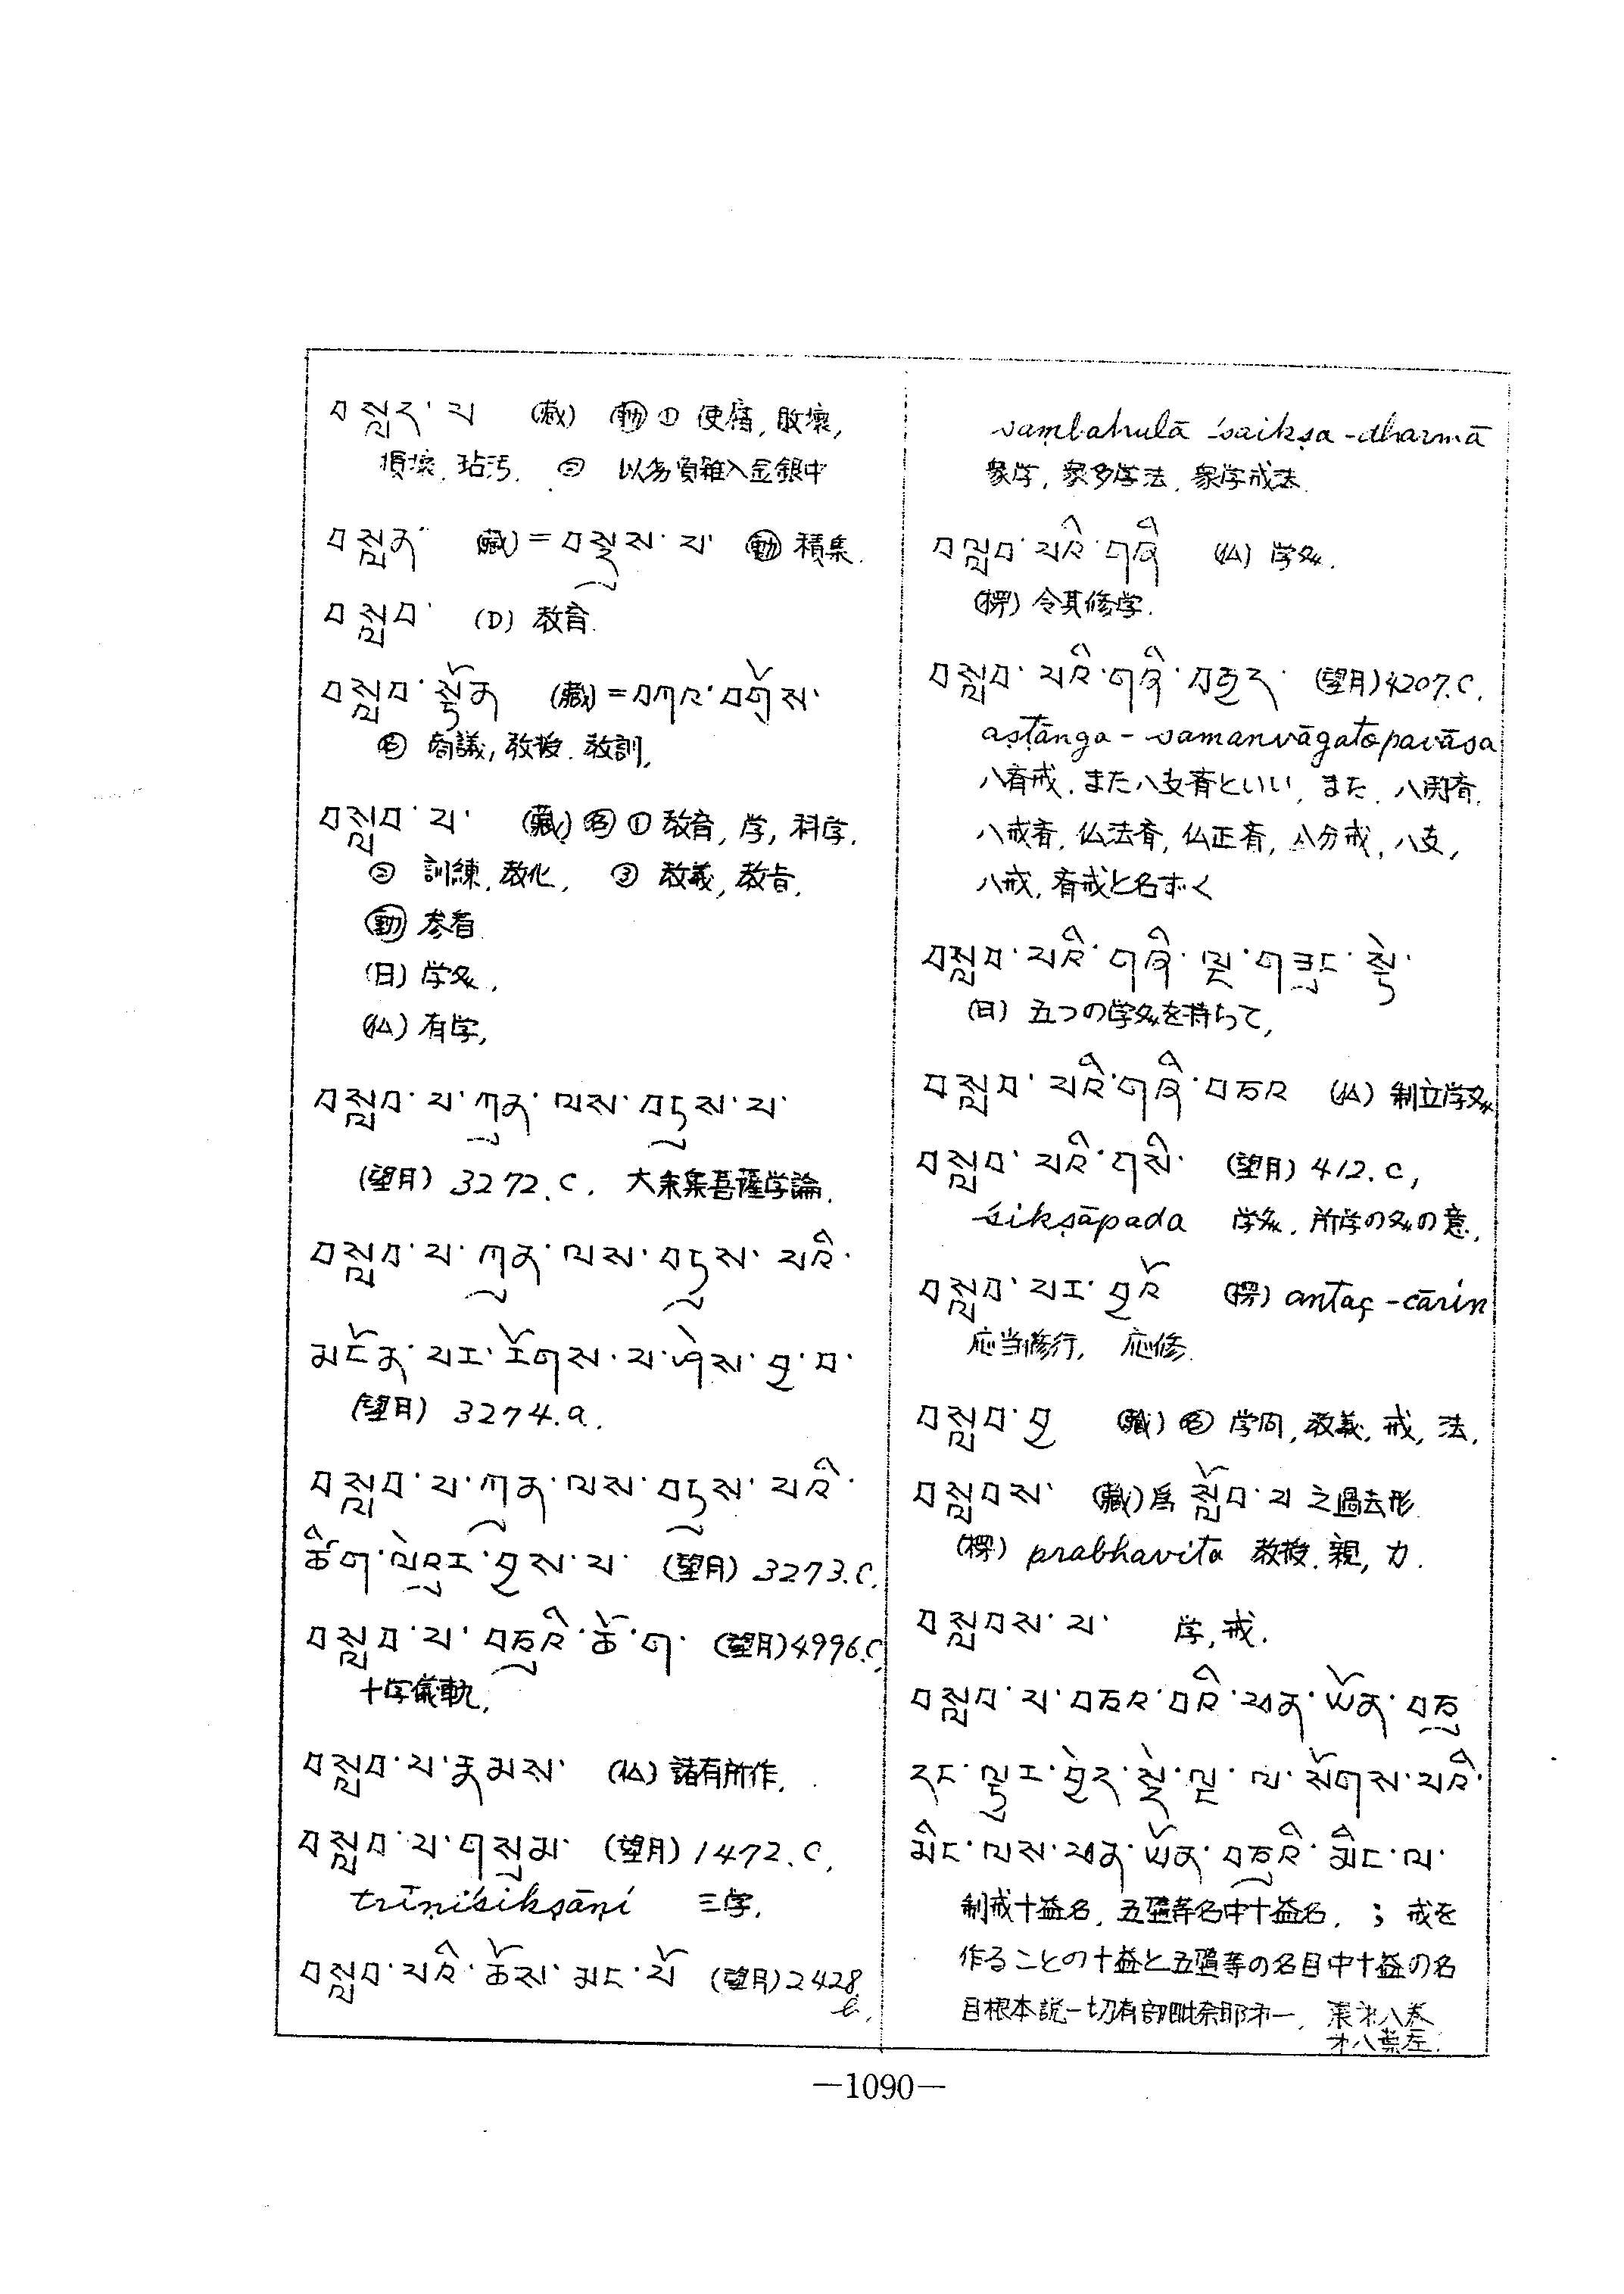 བསླད་པ (藏) 動 ① 使腐, 敗壞,
損壞, 玷汚, ② 以劣質雜入金銀中
བསླན་ (藏) = བསྡུས་པ་ 動 積集.
བསླབ་ (D) 教育.
བསླབ་སྟོན (藏) = བཀའ་བགྲོས་
名 商議, 教授. 教訓,
བསླབ་པ་ (藏) 名 ① 教育, 学, 科学.
② 訓練, 教化, ③ 教義, 教旨,
動 参看
(日) 学処,
(仏) 有学,
བསླབ་པ་ཀུན་ལས་བཏུས་པ་
(望月) 3272.c. 大乗集菩薩学論.
བསླབ་པ་ཀུན་ལས་བཏུས་པའི་
མངོན་པར་རྟོགས་པ་ཞེས་བྱ་བ་
(望月) 3274.a.
བསླབ་པ་ཀུན་ལས་བཏུས་པའི་
ཚིག་ལེའུར་བྱས་པ་ (望月) 3273.c.
བསླབ་པ་བཅུའི་ཆོ་ག་ (望月) 4996.c,
十学儀軌,
བསླབ་པ་རྣམས་ (仏) 諸有所作,
བསླབ་པ་གསུམ་ (望月) 1472.c,
trīṇiśikṣāṇi 三学,
བསླབ་པའི་ཆོས་མང་པོ (望月) 2428.
b,
saṃbahulā śaikṣa-dharmā
衆学, 衆多学法, 衆学戒法.
བསླབ་པའི་གཞི (仏) 学処.
(楞) 令其修学.
བསླབ་པའི་གཞི་བརྒྱད་ (望月) 4207.c,
aṣṭāṅga-samanvāgatopavāsa
八斎戒. また八支斎といい, また, 八関斎,
八戒斎, 仏法斎, 仏正斎, 八分戒, 八支,
八戒, 斎戒と名ずく
བསླབ་པའི་གཞི་ལྔ་གཟུང་སྟེ་
(日) 五つの学処を持ちって,
བསླབ་པའི་གཞི་བཅའ (仏) 制立学処
བསླབ་པའི་གཞི་ (望月) 412.c,
śikṣāpada 学処, 所学の処の意,
བསླབ་པར་བྱའོ (楞) antaś-cārin
応当修行, 応修.
བསླབ་བྱ (藏) 名 学問, 教義, 戒, 法,
བསླབས་ (藏) 爲 སློབ་པ 之過去形
(楞) prabhavita 教授. 親, 力.
བསླབས་པ་ 学, 戒.
བསླབ་པ་བཅའ་བའི་ཕན་ཡོན་བཅུ
དང་ལྟུང་བྱེད་སྡེ་ལྔ་ལ་སོགས་པའི་
མིང་ལས་ཕན་ཡོན་བཅུའི་མིང་ལ་
制戒十益名, 五篇等名中十益名, ; 戒を
作ることの十益と五篇等の名目中十益の名
目根本説一切有部毗奈耶第一, 蔵第八巻
第八葉左.
—1090—